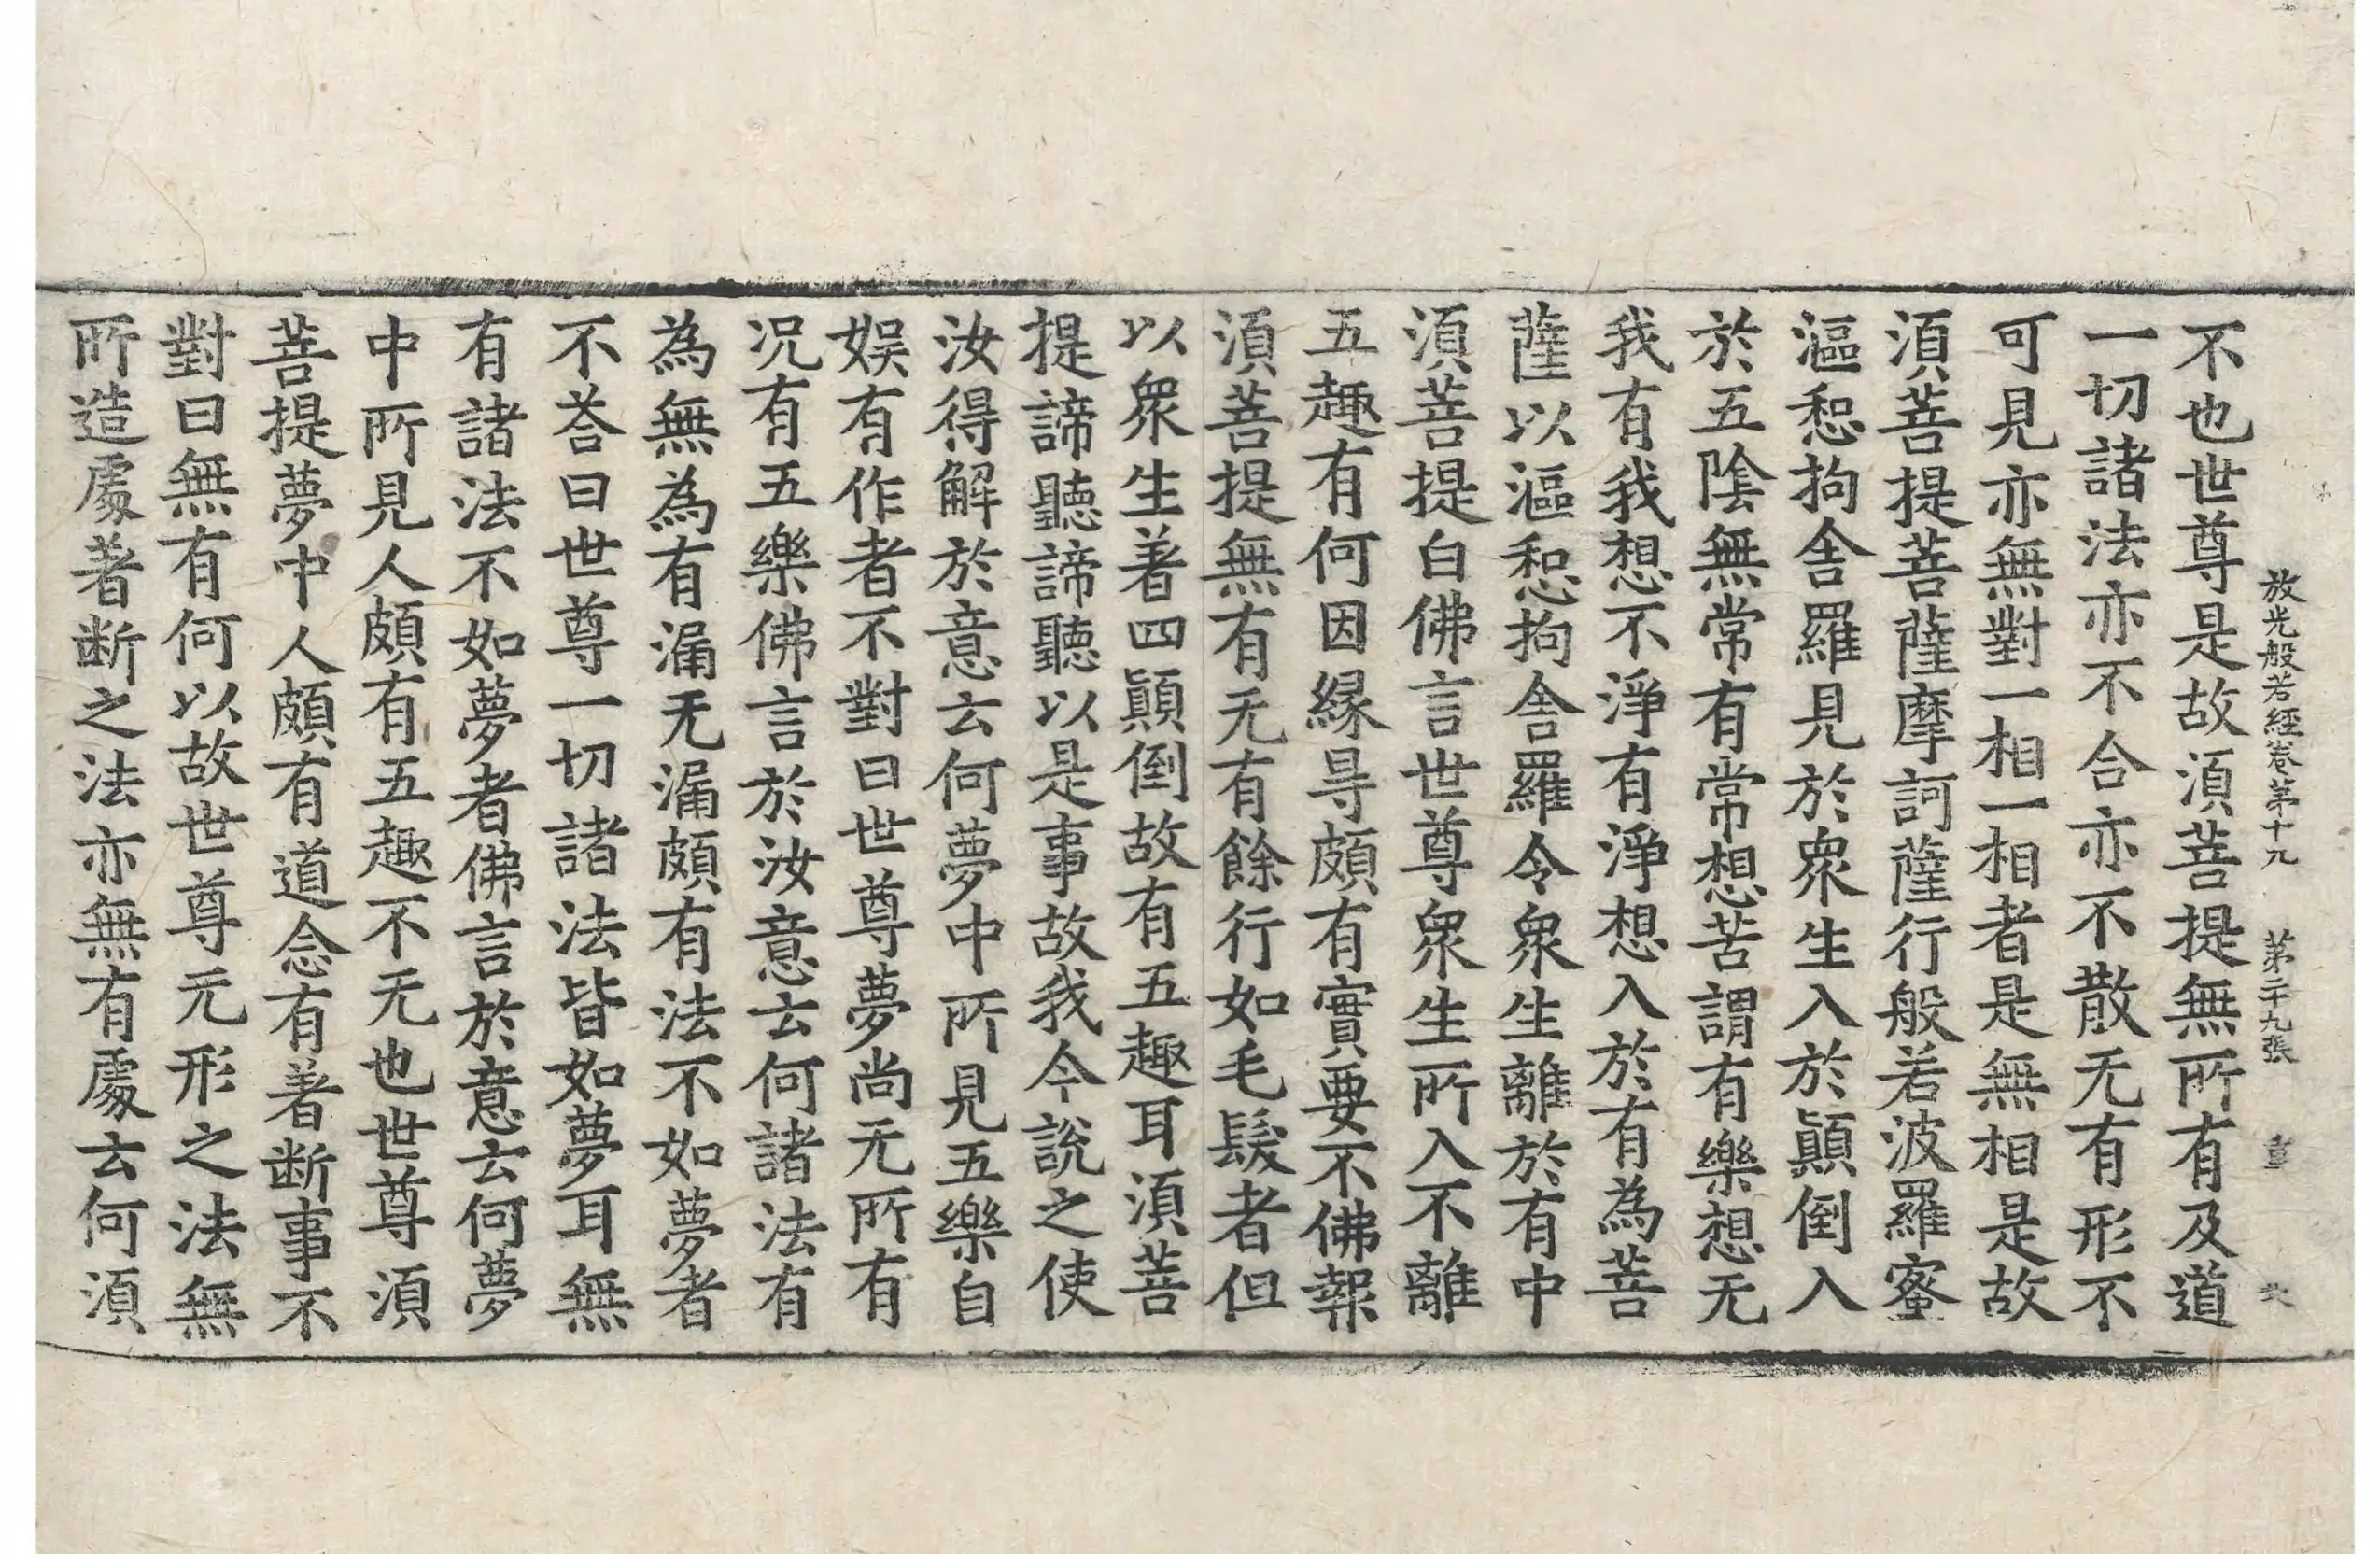 放光般若經卷第十九 第二十九張 重
不也世尊是故湏菩提無所有及道
一切諸法亦不合亦不散无有形不
可見亦無對一相一相者是無相是故
湏菩提菩薩摩訶薩行般若波羅蜜
漚惒拘舍羅見於衆生入於顛倒入
於五陰無常有常想苦謂有樂想无
我有我想不淨有淨想入於有為菩
薩以漚惒拘舍羅令衆生離於有中
湏菩提白佛言世尊衆生所入不離
五趣有何因緣㝵頗有實要不佛報
湏菩提無有无有餘行如毛髮者但
以衆生著四顛倒故有五趣耳湏菩
提諦聽諦聽以是事故我今說之使
汝得解於意云何夢中所見五樂自
娛有作者不對曰世尊夢尚无所有
况有五樂佛言於汝意云何諸法有
為無為有漏无漏頗有法不如夢者
不荅曰世尊一切諸法皆如夢耳無
有諸法不如夢者佛言於意云何夢
中所見人頗有五趣不无也世尊湏
菩提夢中人頗有道念有著断事不
對曰無有何以故世尊元形之法無
所造處著断之法亦無有處云何湏